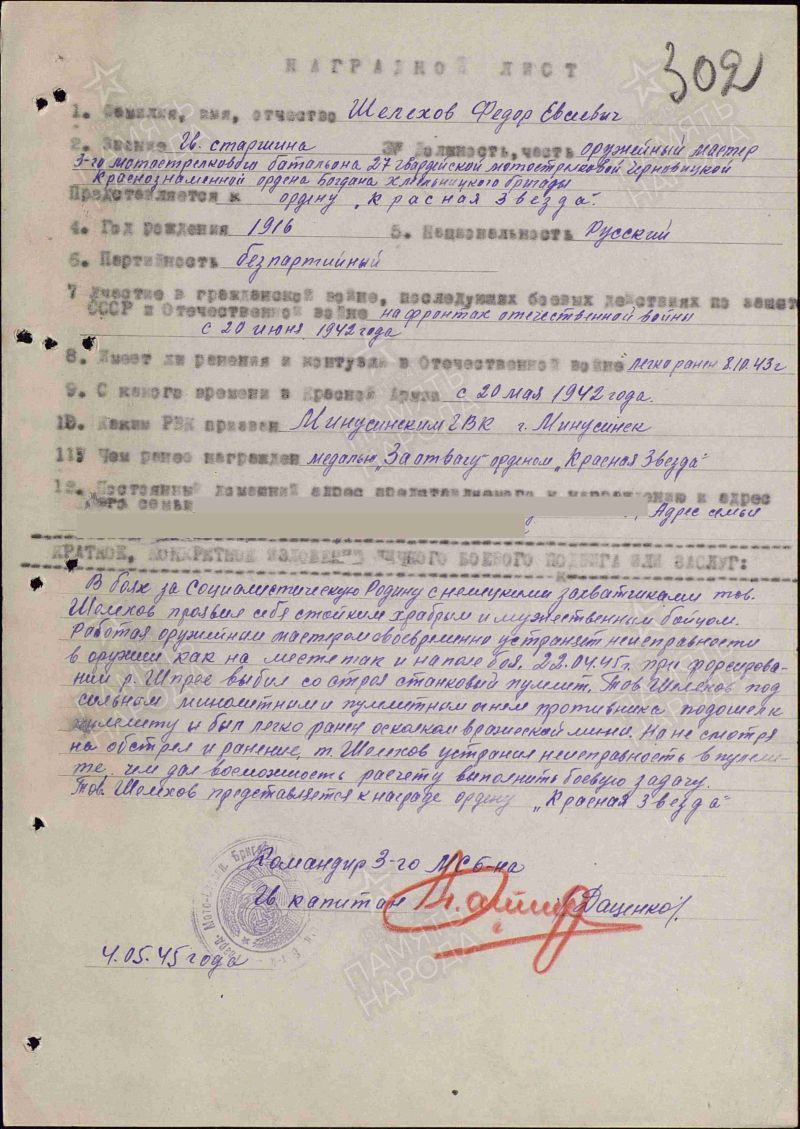 302
НАГРАДНОЙ ЛИСТ
1. Фамилия, имя, отчество Шелехов Федор Евсеевич
2. Звание Гв. старшина 3. Должность, часть оружейный мастер
3-го мотострелкового батальона 27 гвардейской мотострелковой Черновицкой
Краснознаменной ордена Богдана Хмельницкого бригады
Представляется к ордену „Красная Звезда".
4. Год рождения 1916 5. Национальность Русский
6. Партийность безпартийный
7 Участие в гражданской войне, последующих боевых действиях по защите
СССР и Отечественной войне на фронтах отечественной войны
с 20 июня 1942 года
8. Имеет ли ранения и контузии в Отечественной войне легко ранен 8.10.43г
9. С какого времени в Красной Армии с 20 мая 1942 года.
10. Каким РВК призван Минусинским ГВК г. Минусинск
11 Чем ранее награжден медалью „За отвагу" орденом „Красная Звезда"
12. Постоянный домашний адрес представляемого к награждению и адрес
его семьи Адрес семьи
КРАТКОЕ, КОНКРЕТНОЕ ИЗЛОЖЕНИЕ ЛИЧНОГО БОЕВОГО ПОДВИГА ИЛИ ЗАСЛУГ:
В боях за Социалистическую Родину с немецкими захватчиками тов.
Шелехов проявил себя стойким храбрым и мужественным бойцом.
Работая оружейным мастером своевременно устраняет неисправности
в оружии как на месте так и на поле боя. 22.04.45г. при форсирова-
нии р. Шпрее выбил со строя станковый пулмет. Тов. Шелехов под
сильным минометным и пулметным огнем противника подошел к
пулемету и был легко ранен осколком вражеской мины. На не смотря
на обстрел и ранение, т. Шелехов устранил неисправность в пулме-
те, чем дал возможность расчету выполнить боевую задачу.
Тов. Шелехов представляется к награде ордену „Красная Звезда"
Командир 3-го МСб-на
Гв. капитан /Даценко/.
4.05.45 года
ПАМЯТЬ НАРОДА